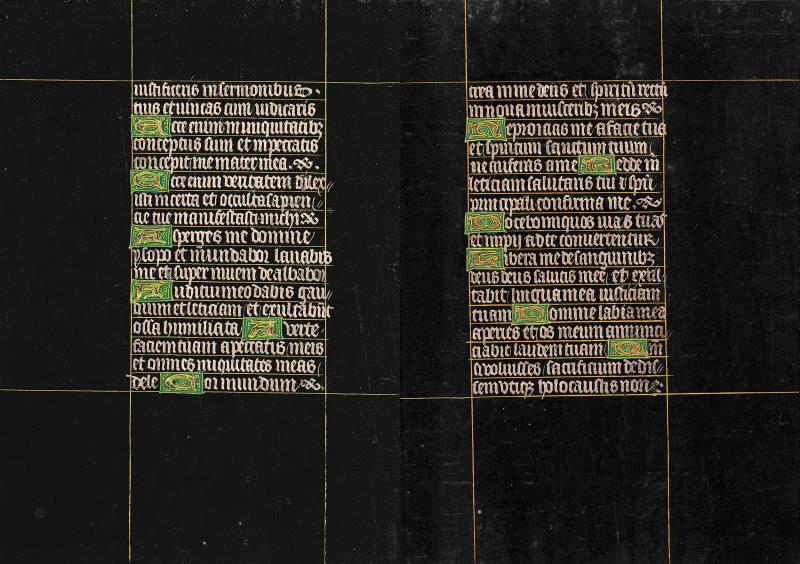 iustificeris in sermonibus
tuis et uincas cum iudicaris
Ecce enim in iniquitatibz
conceptus sum et in peccatis
concepit me mater mea.
Ecce enim ueritatem dilex
isti incerta et occulta sapien
cie tue manifestasti michi
Asperges me domine
ysopo et mundabor lauabis
me et super niuem dealbabor
Auditui meo dabis gau
dium et leticiam et exultabunt
ossa humiliata Auerte
faciem tuam a peccatis meis
et omnes iniquitates meas
dele Cor mundum
crea in me deus et spiritū rectū
innoua in uisceribz meis
Ne proicias me a facie tua
et spiritum sanctum tuum
ne auferas a me Redde m
leticiam salutaris tui &
principali confirma me
Docebo iniquos uias tuas
et impij ad te conuertentur
Libera me de sanguinibz
deus deus salutis mee et exul
tabit lingua mea iusticiam
tuam Domine labia mea
aperies et os meum annunci
ciabit laudem tuam
uoluisses sacrificium dedis
sem utiqz holocaustis non